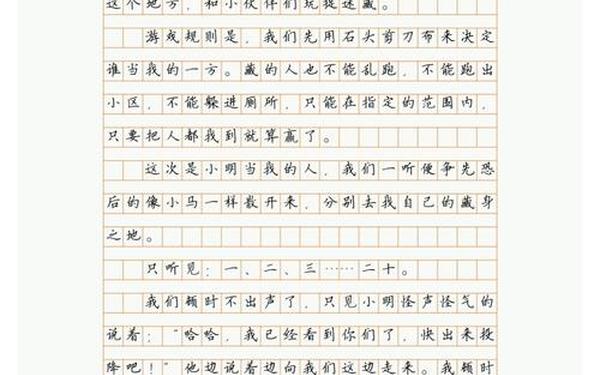 这个地方，和小伙伴们玩捉迷藏。
游戏规则是，我们先用石头剪刀布来决定
谁当我的一方。藏的人也不能乱跑，不能跑出
小区，不能躲进厕所，只能在指定的范围内，
只要把人都我到就算赢了。
这次是小明当我的人，我们一听便争先恐
后的像小马一样散开来，分别去我自己的藏身
之地。
只听见：一、二、三……二十。
我们顿时不出声了，只见小明怪声怪气的
说着：“哈哈，我已经看到你们了，快出来投
降吧！”他边说着边向我们这边走来。我顿时